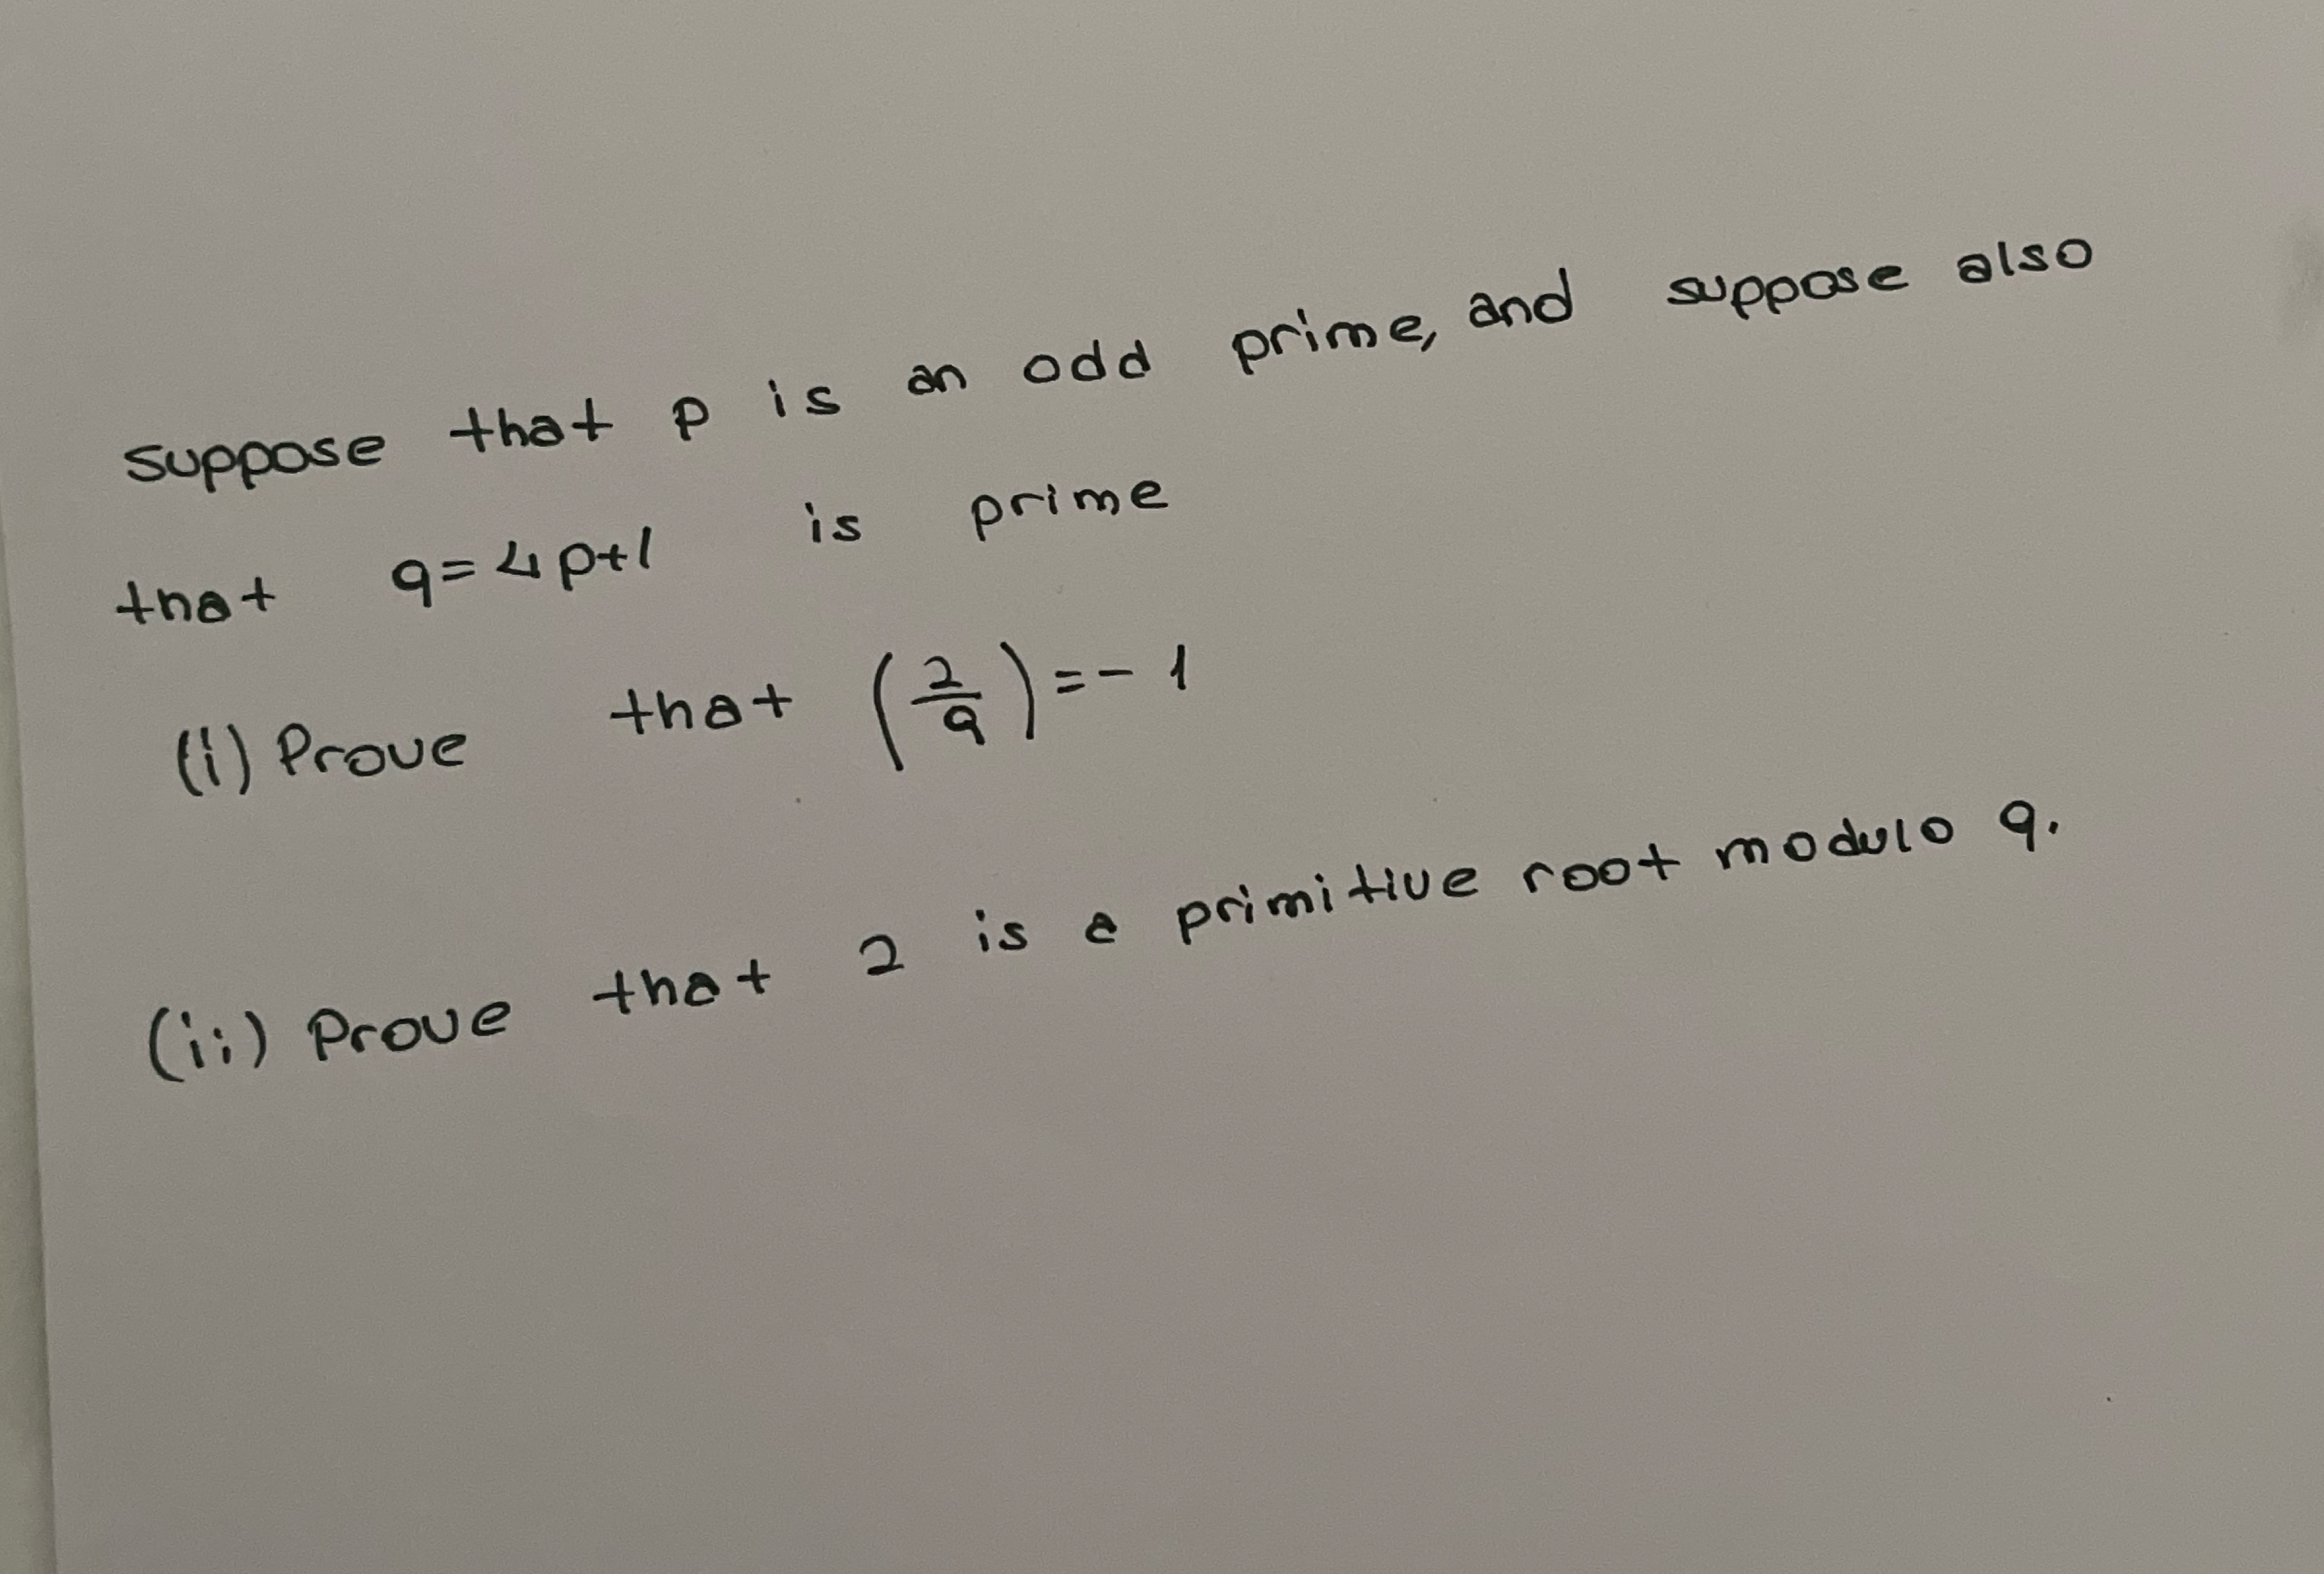 suppose that p is an odd prime, and suppose also
that q=4p+1 is prime
(i) Prove that (2/q)=-1
(ii) Prove that 2 is a primitive root modulo q.